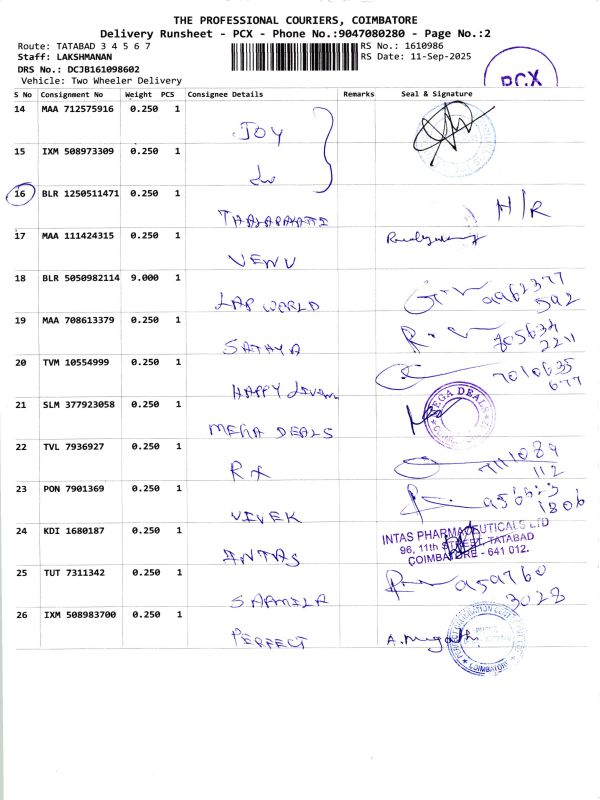 THE PROFESSIONAL COURIERS, COIMBATORE
Delivery Runsheet - PCX - Phone No.:9047080280 - Page No.:2
Route: TATABAD 3 4 5 6 7 RS No.: 1610986
Staff: LAKSHMANAN RS Date: 11-Sep-2025
DRS No.: DCJB161098602
Vehicle: Two Wheeler Delivery
PCX
S No Consignment No Weight PCS Consignee Details Remarks Seal & Signature
14 MAA 712575916 0.250 1
JOY
15 IXM 508973309 0.250 1
16 BLR 1250511471 0.250 1
N/R
17 MAA 111424315 0.250 1
VENU
18 BLR 5050982114 9.000 1
LAP WORLD
19 MAA 708613379 0.250 1
SATHYA
20 TVM 10554999 0.250 1
HAPPY
21 SLM 377923058 0.250 1
MEGA DEALS
MEGA DEALS
22 TVL 7936927 0.250 1
112
23 PON 7901369 0.250 1
VIVEK
24 KDI 1680187 0.250 1
INTAS PHARMACEUTICALS LTD
96, 11th STREET, TATABAD
COIMBATORE - 641 012.
INTAS
25 TUT 7311342 0.250 1
SARMILA
3028
26 IXM 508983700 0.250 1
PERFECT
COIMBATORE